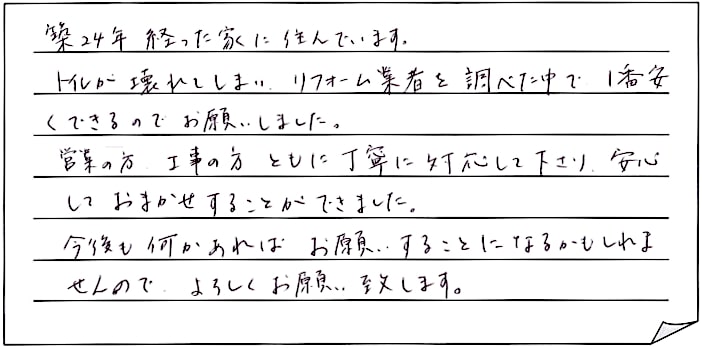 築24年 経った家に住んでいます。
トイレが壊れてしまい、リフォーム業者を調べた中で 1番安
くできるので お願いしました。
営業の方、工事の方 ともに丁寧に対応して下さり、安心
して おまかせすることができました。
今後も何かあれば お願いすることになるかもしれま
せんので、よろしくお願い致します。